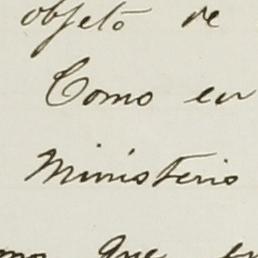 objeto de
Como en
Ministerio
que